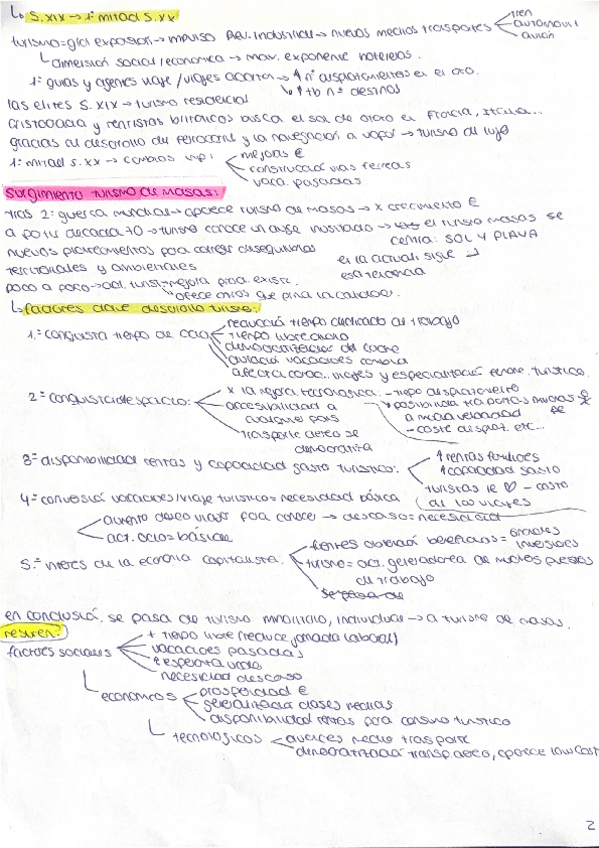 ↳ S. XIX → 1ª mitad S. XX
turismo = gra expasion → impulso Rev. Industrial → nuevos medios trasportes
tren
automovil
avión
↳ dimensión social/economica → max. exponente hoteleros.
1ª guias y agentes viaje/viajes aparta → ↑ nº desplazamientos en el
↳ ↑ tb nº destinos
las elites S. XIX → turismo residencial
aristocracia y rentistas britanicos busca el sol de otoño en Francia, Italia...
gracias al desarollo del ferrocarril y la navegacion a vapor → turismo de lujo
1ª mitad S. XX → cambios imp:
mejoras €
construcció vias ferreas
vaca. pagadas
Surgimiento turismo de masas:
tras 2ª guerra mundial → aparece turismo de masas → x crecimiento €
a partir decada 70 → turismo conoce un auge inusitado → el turismo masas se
centra: SOL Y PLAYA
nuevos planteamientos para corregir desequilibrios
territoriales y ambientales
en la actuali. sigue
esa tendencia
poco a poco → act. turist = mejora prod. existe.
ofrece otros que prima la calidad.
↳ factores clave desarrollo turismo:
1.ª conquista tiempo de ocio
reducció tiempo dedicado al trabajo
tiempo libre
democratización del coche
duració vacaciones cambia
afecta viajes y especialització turistico.
2ª conquista espacio:
x la mejora tecnologica. - tiempo desplazamiento
accesibilidad a
cualquier pais
trasporte aereo se
democratiza
posibilidad trasportar muchas
a mucha velocidad
- coste desplat. etc...
3ª disponibilidad rentas y capacidad gasto turistico:
↑ rentas familiares
↑ capacidad gasto
turistas - costo
de los viajes
4ª conversió vacaciones/viaje turistico = necesidad básica
aumento deseo viajar para conocer → descaso = necesidad
act. ocio = básica
5.ª interes de la economia capitalista.
fuentes obtenció beneficios = grandes
inversiones
turismo = act. generadora de muchos puestos
de trabajo
en conclusió, se pasa de turismo minoritario, individual → a turismo de masas.
resumen:
factores sociales
+ tiempo libre (reduce jornada laboral)
vacaciones pagadas
↑ esperanza vida
necesidad descaso
↳ economicos
prosperidad €
generalizació clases medias
disponibilidad rentas para consumo turistico
↳ tecnologicos
avances medio trasporte
democratizació transp. aereo, aparece low cost
2